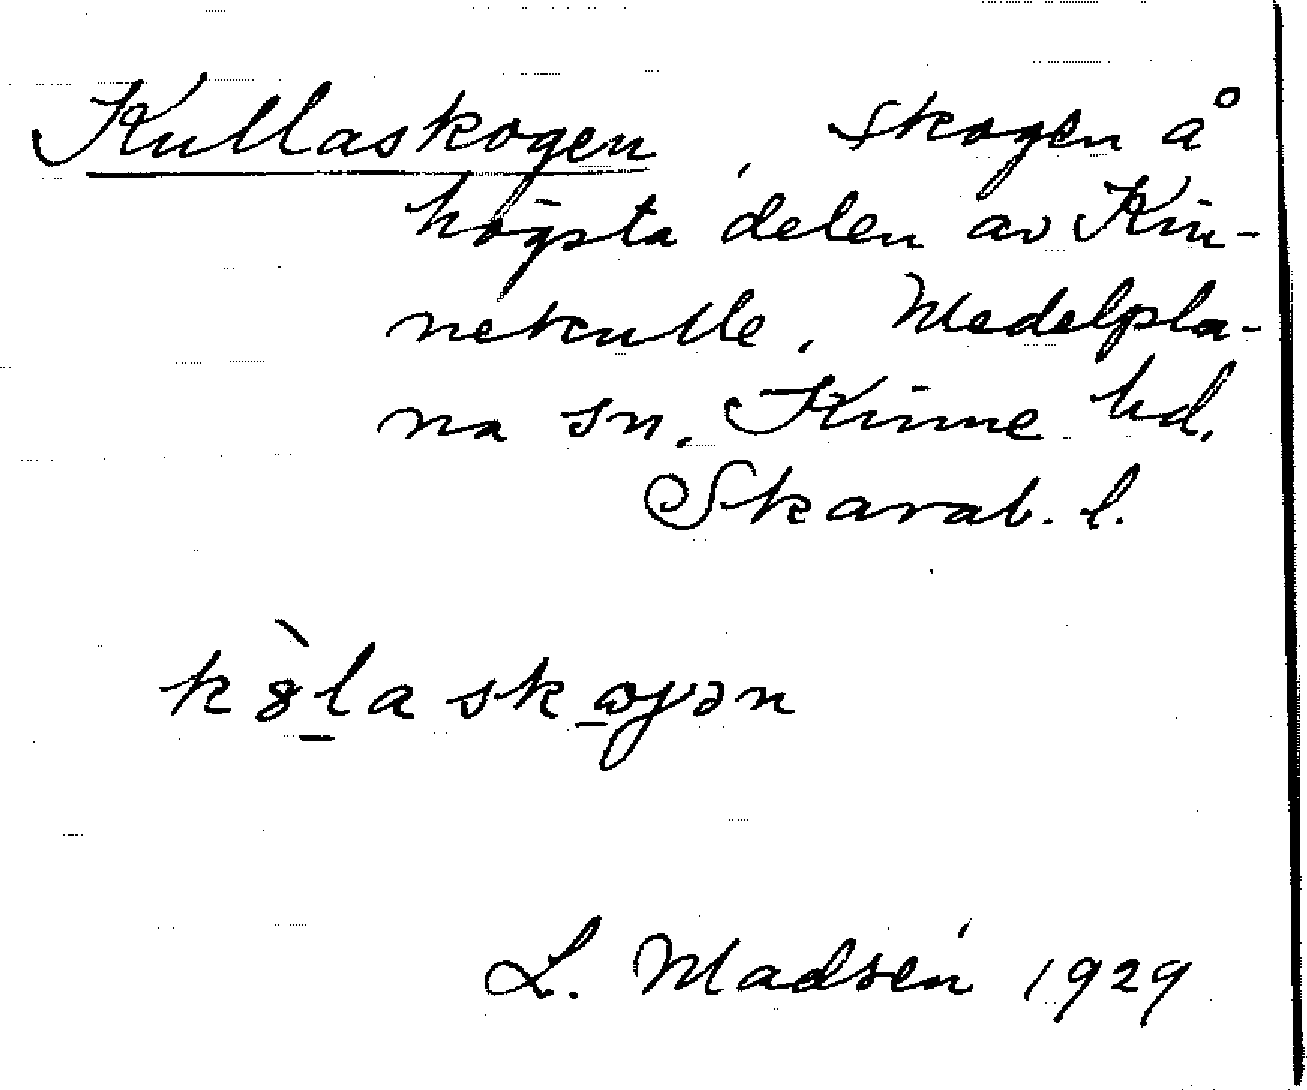 Kullaskogen, skogen å
högsta delen av Kin-
nekulle. Medelpla-
na sn. Kinne hd.
Skarab. l.
k8̀l̠askɷɣən
L. Madsén 1929